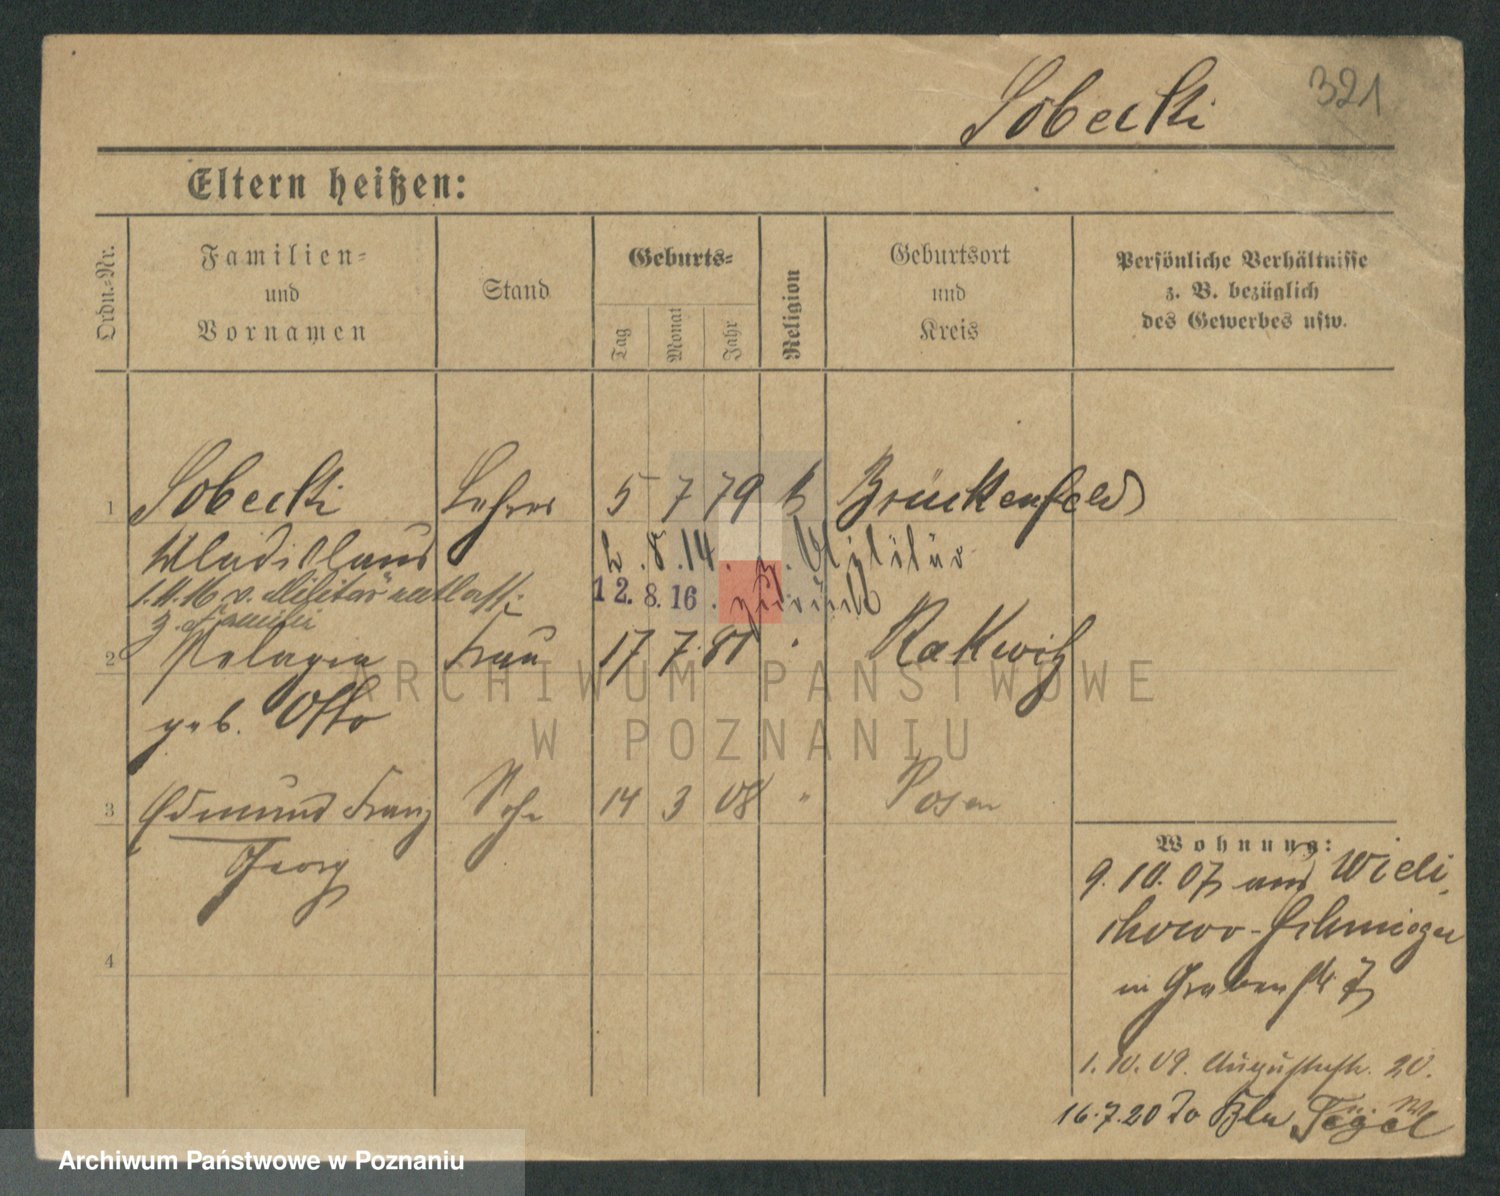 Sobecki 321
Eltern heißen:
Ordn.-Nr.
Familien-
und
Vornamen
Stand
Geburts-
Tag
Monat
Jahr
Religion
Geburtsort
und
Kreis
Persönliche Verhältnisse
z. B. bezüglich
des Gewerbes usw.
1 Sobecki Lehrer 5 7 79 k Brückenfeld
Wladislaus 2.8.14. z. Militär
1.11.16 v. Militär entlass. 12.8.16. zurück
z. Familie
2 Pelagia Frau 17 7 81 " Rakwitz
geb. Otto
3 Edmund Franz Sohn 14 3 08 " Posen
Georg
4
Wohnung:
9.10.07 aus Wieli-
chowo-Schmiegel
in Grabenstr. 7
1.10.09. Augustastr. 20.
16.7.20 Bln Tegel
ARCHIWUM PAŃSTWOWE
W POZNANIU
Archiwum Państwowe w Poznaniu